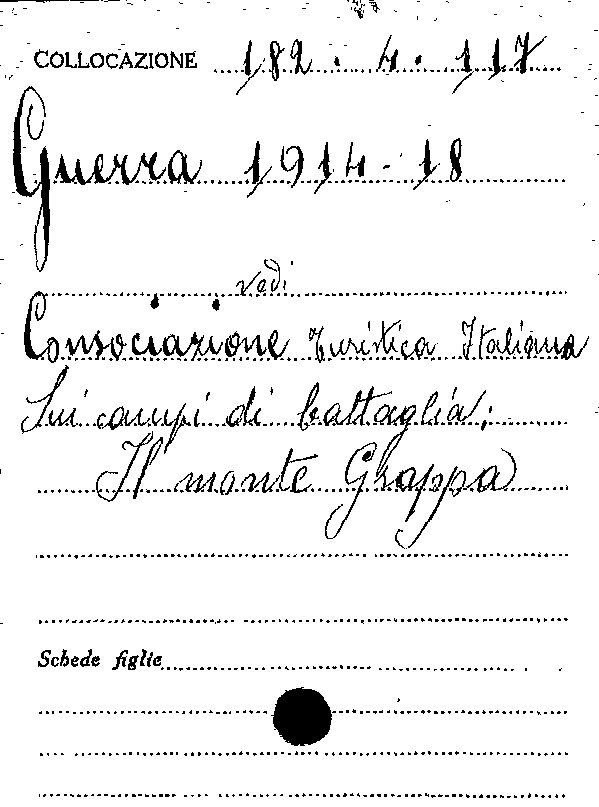 COLLOCAZIONE 182.4.117
Guerra 1914-18
vedi
Consociazione Turistica Italiana
Sui campi di battaglia;
Il monte Grappa
Schede figlie